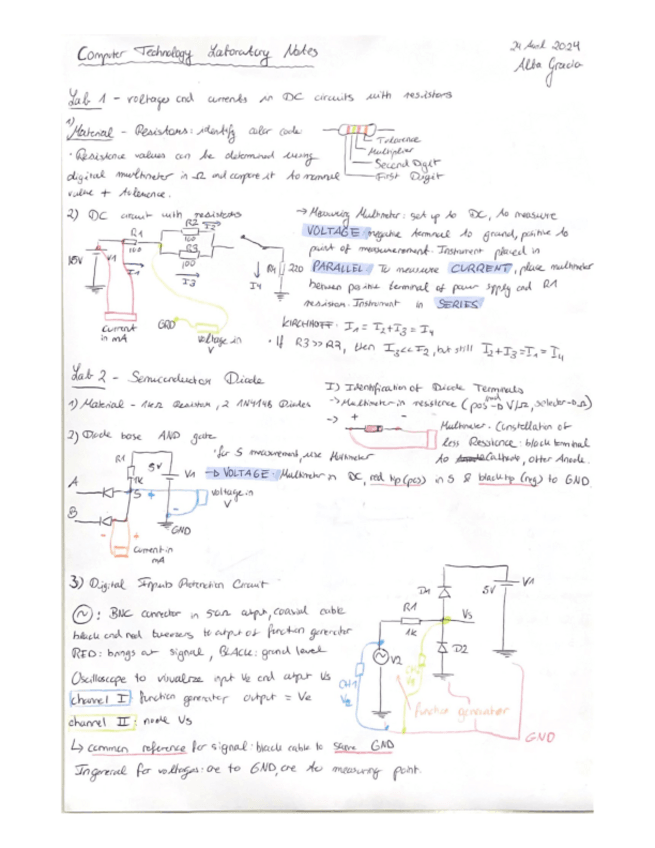 Computer Technology Laboratory Notes
2024
Alba Gracia
Lab 1 - voltages and currents in DC circuits with resistors
1) Material - Resistors: identify color code
Tolerance
Multiplier
Second Digit
First Digit
· Resistance values can be determined using
digital multimeter in Ω and compare it to nominal
value + tolerance.
2) DC circuit with resistors
R1
100
R2
100
I2
R3
100
I3
15V
V1
I1
I4
R4
220
current
in mA
GRD
voltage in
V
→ Measuring Multimeter: set up to DC, to measure
VOLTAGE negative terminal to ground, positive to
point of measurement. Instrument placed in
PARALLEL. To measure CURRENT, place multimeter
between positive terminal of power spply and R1
resistor. Instrument in SERIES
KIRCHHOFF: I1 = I2+I3 = I4
· If R3 >> R2, then I3 << I2, but still I2+I3=I1=I4
Lab 2 - Semiconductor Diode
1) Material - 1kΩ Resistor, 2 1N4148 Diodes
I) Identification of Diode Terminals
→ Multimeter in resistence (pos → V/Ω, selector → Ω)
→ + -
Multimeter. Constellation of
less Resistance: black terminal
to Cathode, other Anode.
2) Diode base AND gate
· for S measurement, use Multimeter
→ VOLTAGE: Multimeter in DC, red tip (pos) in S & black tip (neg) to GND.
R1
1K
5V
V1
A
S
+
-
voltage in
V
B
GND
- +
Current in
mA
3) Digital Inputs Protection Circuit
: BNC connector in 50Ω output, coaxial cable
black and red to output of function generator
RED: brings out signal, BLACK: ground level
Oscilloscope to visualize input Ve and output Vs
channel I: function generator output = Ve
channel II: node Vs
↳ common reference for signal: black cable to same GND
In general for voltages: one to GND, one to measuring point.
D1
5V
V1
R1
1k
Vs
D2
V2
CH1
Ve
CH2
Vs
function generator
GND